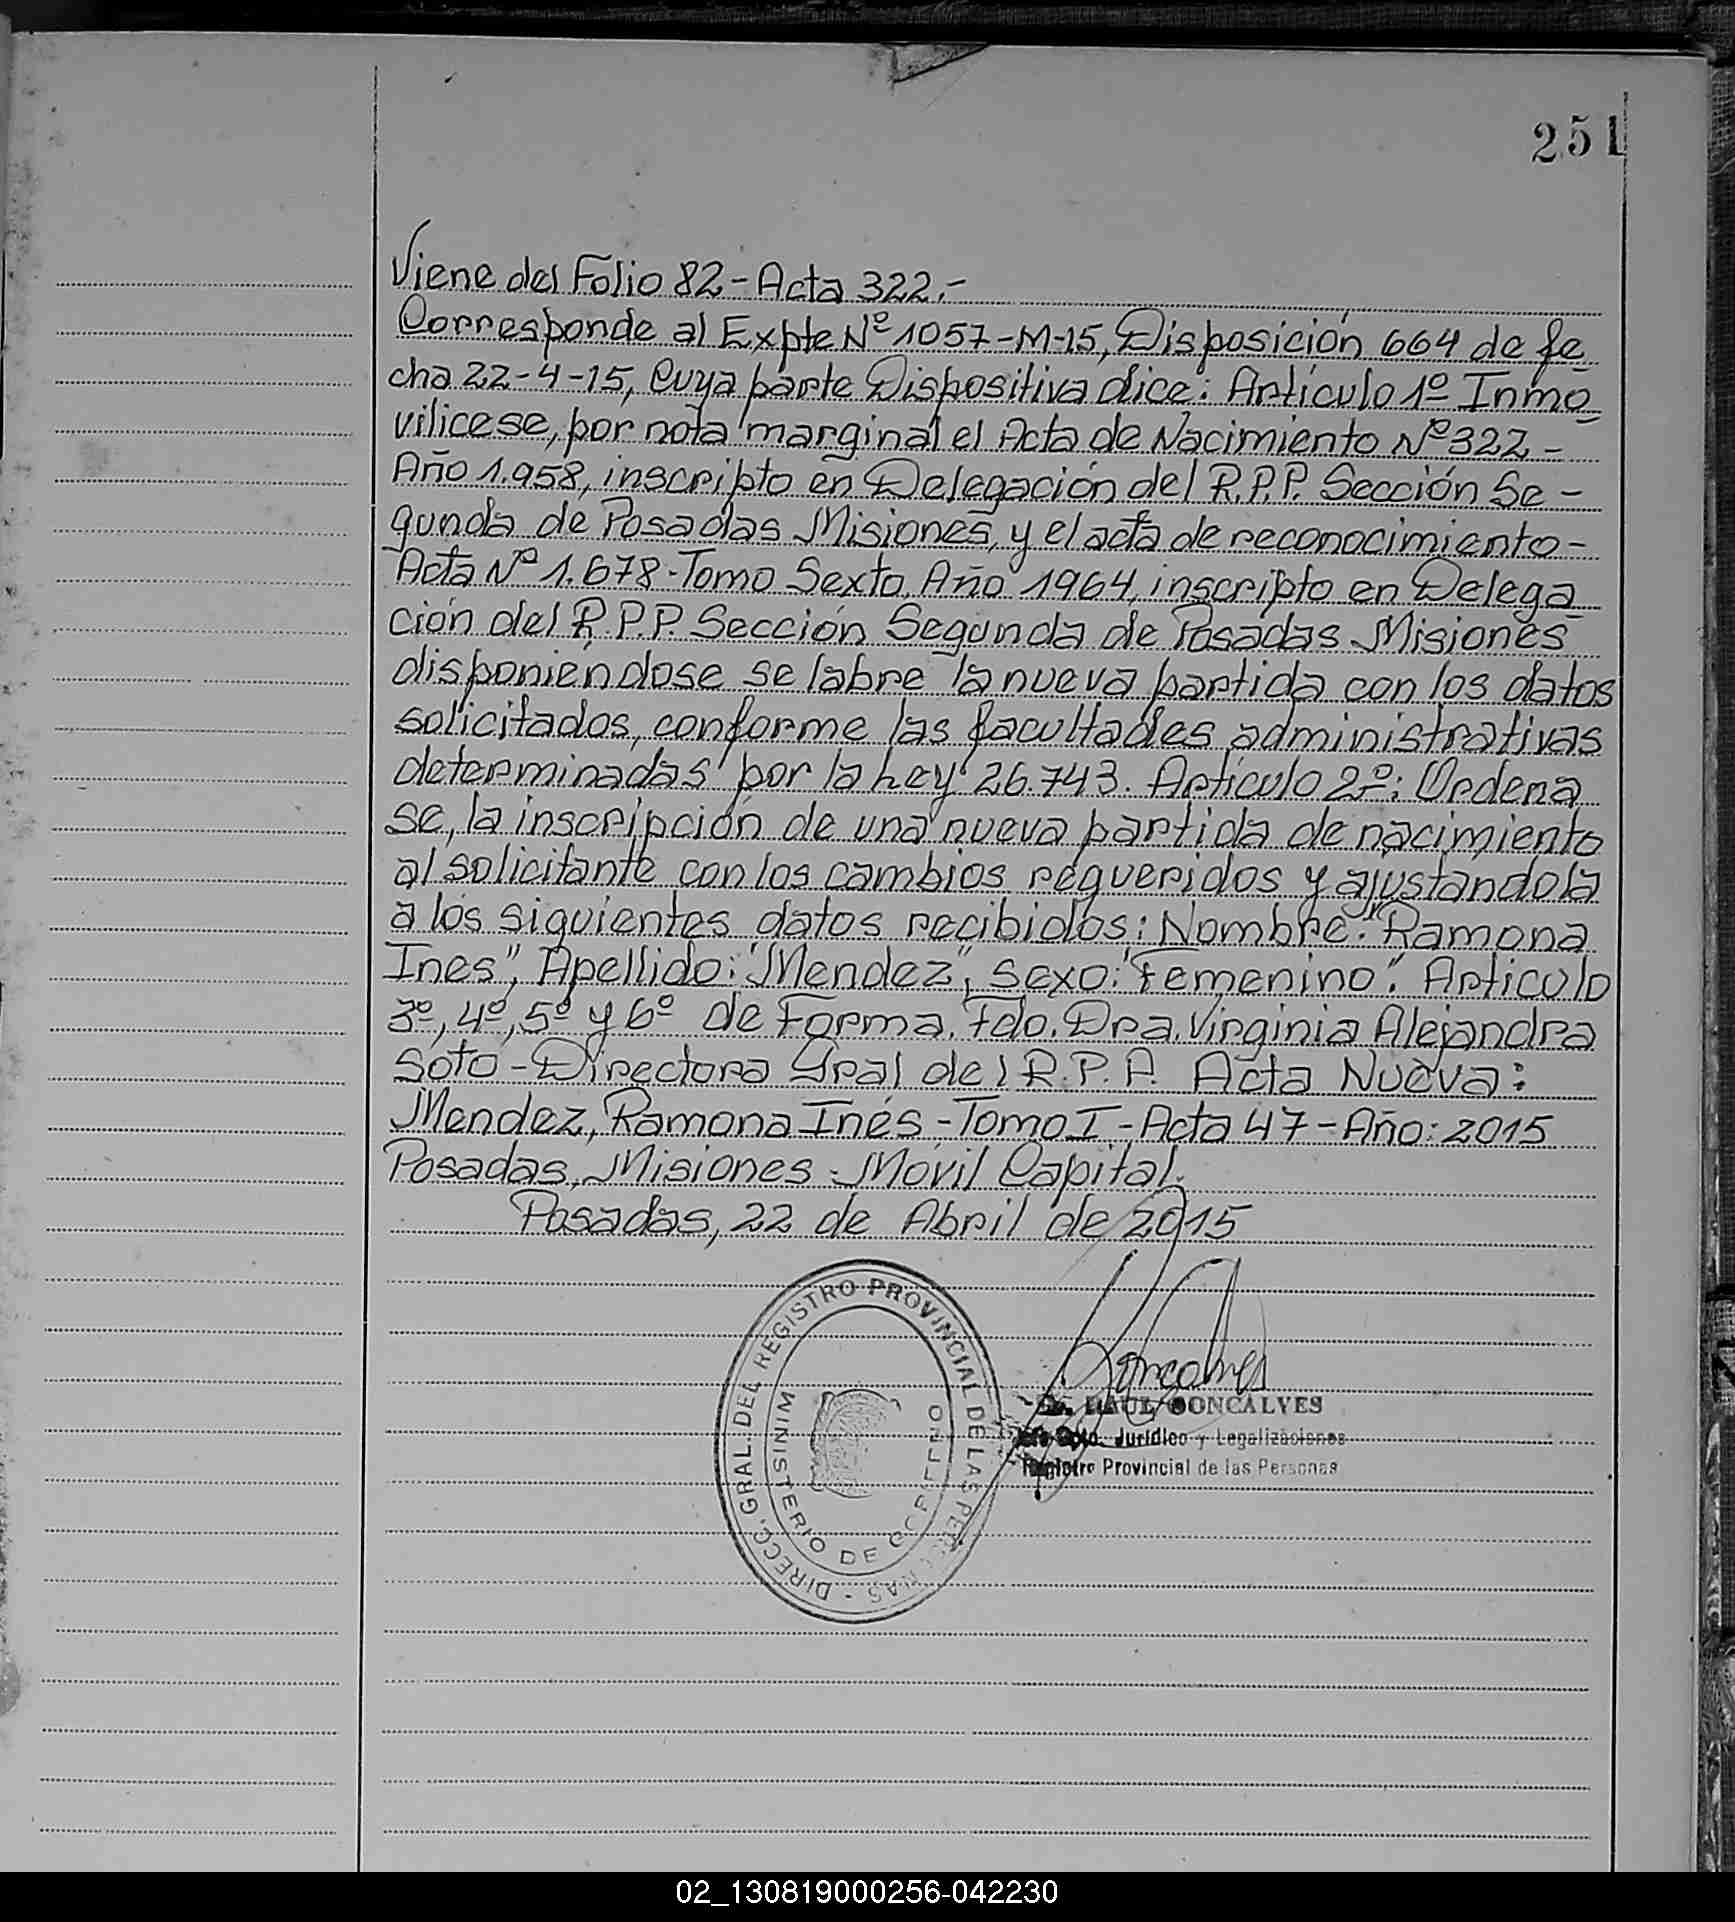 251
Viene del Folio 82-Acta 322.-
Corresponde al Expte Nº 1057-M-15, Disposición 664 de fe
cha 22-4-15, cuya parte Dispositiva dice: Artículo 1º Inmo
vilicese, por nota marginal el Acta de Nacimiento Nº 322-
Año 1.958, inscripto en Delegación del R.P.P. Sección Se-
gunda de Posadas Misiones, y el acta de reconocimiento-
Acta Nº 1.678-Tomo Sexto, Año 1964, inscripto en Delega
ción del R.P.P. Sección Segunda de Posadas Misiones
disponiendose se labre la nueva partida con los datos
solicitados, conforme las facultades administrativas
determinadas por la Ley 26.743. Artículo 2º: Ordena
se, la inscripción de una nueva partida de nacimiento
al solicitante con los cambios requeridos y ajustandola
a los siguientes datos recibidos: Nombre: "Ramona
Ines", Apellido: "Mendez", Sexo: "Femenino". Articulo
3º, 4º, 5º y 6º de Forma. Fdo. Dra. Virginia Alejandra
Soto - Directora Gral del R.P.P. Acta Nueva:
Mendez, Ramona Inés - Tomo I - Acta 47 - Año: 2015
Posadas, Misiones - Móvil Capital.
Posadas, 22 de Abril de 2015
DIRECC. GRAL. DEL REGISTRO PROVINCIAL DE LAS PERSONAS -
MINISTERIO DE GOBIERNO
Goncalves
RAUL GONCALVES
Dpto. Jurídico y Legalizaciones
Registro Provincial de las Personas
02_130819000256-042230